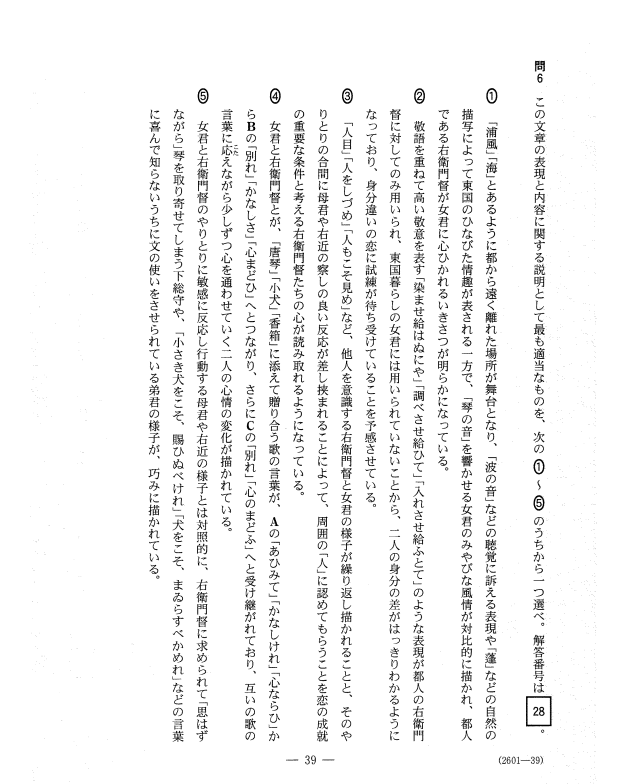 問6　この文章の表現と内容に関する説明として最も適当なものを、次の①～⑤のうちから一つ選べ。解答番号は 28 。
①　「浦風」「海」とあるように都から遠く離れた場所が舞台となり、「波の音」などの聴覚に訴える表現や「蓬」などの自然の
描写によって東国のひなびた情趣が表される一方で、「琴の音」を響かせる女君のみやびな風情が対比的に描かれ、都人
である右衛門督が女君に心ひかれるいきさつが明らかになっている。
②　敬語を重ねて高い敬意を表す「染ませ給はぬにや」「調べさせ給ひて」「入れさせ給ふとて」のような表現が都人の右衛門
督に対してのみ用いられ、東国暮らしの女君には用いられていないことから、二人の身分の差がはっきりわかるように
なっており、身分違いの恋に試練が待ち受けていることを予感させている。
③　「人目」「人をしづめ」「人もこそ見め」など、他人を意識する右衛門督と女君の様子が繰り返し描かれることと、そのや
りとりの合間に母君や右近の察しの良い反応が差し挟まれることによって、周囲の「人」に認めてもらうことを恋の成就
の重要な条件と考える右衛門督たちの心が読み取れるようになっている。
④　女君と右衛門督とが、「唐琴」「小犬」「香箱」に添えて贈り合う歌の言葉が、Aの「あひみて」「かなしけれ」「心ならひ」か
らBの「別れ」「かなしさ」「心まどひ」へとつながり、さらにCの「別れ」「心のまどふ」へと受け継がれており、互いの歌の
言葉に応えながら少しずつ心を通わせていく二人の心情の変化が描かれている。
⑤　女君と右衛門督のやりとりに敏感に反応し行動する母君や右近の様子とは対照的に、右衛門督に求められて「思はず
ながら」琴を取り寄せてしまう下総守や、「小さき犬をこそ、賜ひぬべけれ」「犬をこそ、まゐらすべかめれ」などの言葉
に喜んで知らないうちに文の使いをさせられている弟君の様子が、巧みに描かれている。
— 39 —
(2601—39)